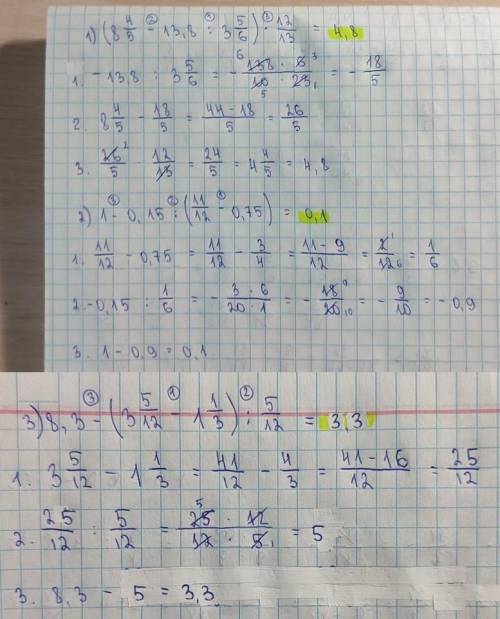 1) (8 4/5 - 13,8 : 3 5/6) · 12/13 = 4,8
1. -13,8 : 3 5/6 = - 138 · 6 / 10 · 23 = - 18/5
2. 8 4/5 - 18/5 = 44 - 18 / 5 = 26/5
3. 26/5 · 12/13 = 24/5 = 4 4/5 = 4,8
2) 1 - 0,15 : (11/12 - 0,75) = 0,1
1. 11/12 - 0,75 = 11/12 - 3/4 = 11 - 9 / 12 = 2/12 = 1/6
2. -0,15 : 1/6 = - 3 · 6 / 20 · 1 = - 18/20 = - 9/10 = -0,9
3. 1 - 0,9 = 0,1
3) 8,3 - (3 5/12 - 1 1/3) : 5/12 = 3,3
1. 3 5/12 - 1 1/3 = 41/12 - 4/3 = 41 - 16 / 12 = 25/12
2. 25/12 : 5/12 = 25 · 12 / 12 · 5 = 5
3. 8,3 - 5 = 3,3